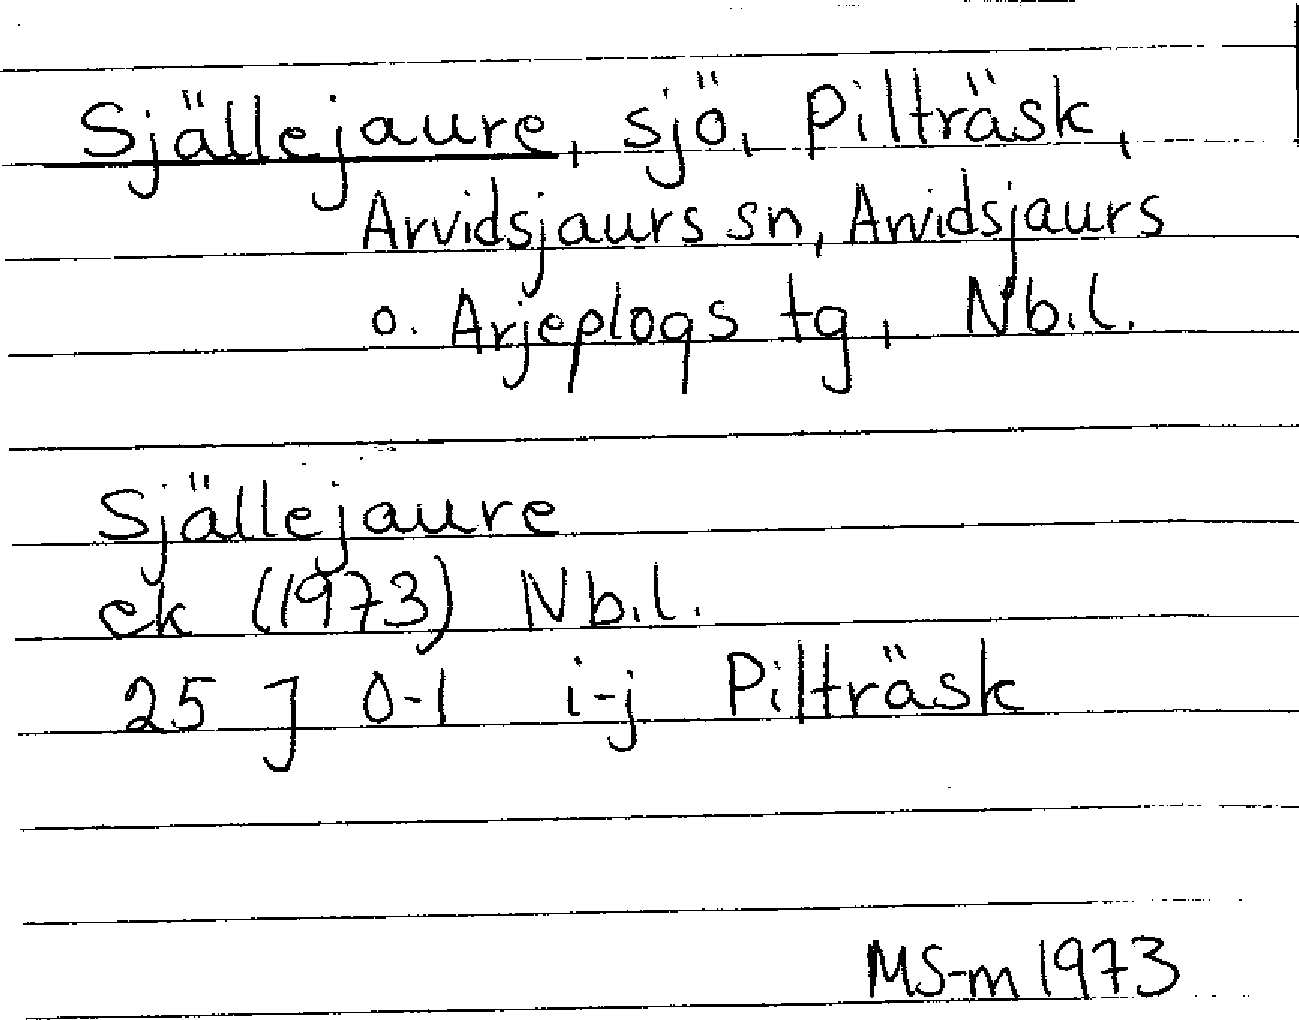 Själlejaure, sjö, Pilträsk,
Arvidsjaurs sn, Arvidsjaurs
o. Arjeplogs tg, Nb.l.
Själlejaure
ek (1973) Nb.l.
25 J 0-1 i-j Pilträsk
MS-m 1973